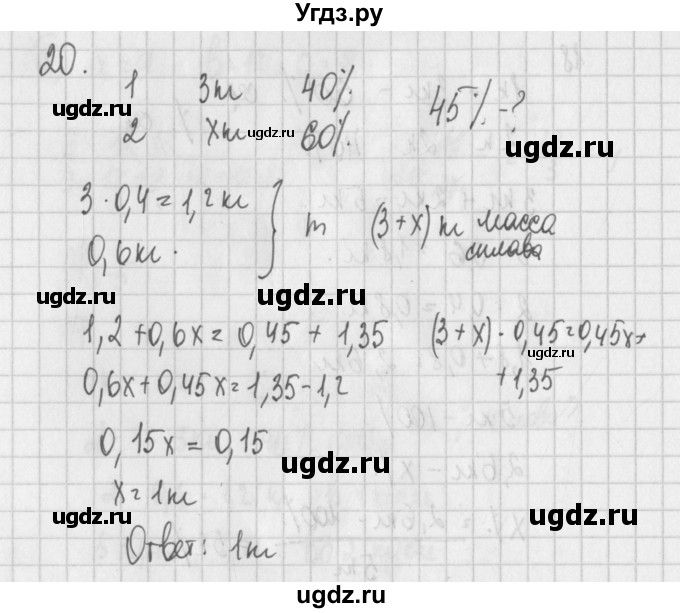 Угдз.ру
20.
1 3т 40%
2 xт 60%
45% - ?
ugdz.ru ugdz.ru ugdz.ru
3 · 0,4 = 1,2т
0,6т.
} m (3+x) т масса
сплава
ugdz.ru ugdz.ru
1,2 + 0,6x = 0,45 + 1,35 (3+x) · 0,45 = 0,45x +
ugdz.ru
+ 1,35
0,6x + 0,45x = 1,35 - 1,2
ugdz.ru
0,15x = 0,15
ugdz.ru ugdz.ru
x = 1т
ugdz.ru ugdz.ru
Ответ: 1т
ugdz.ru ugdz.ru